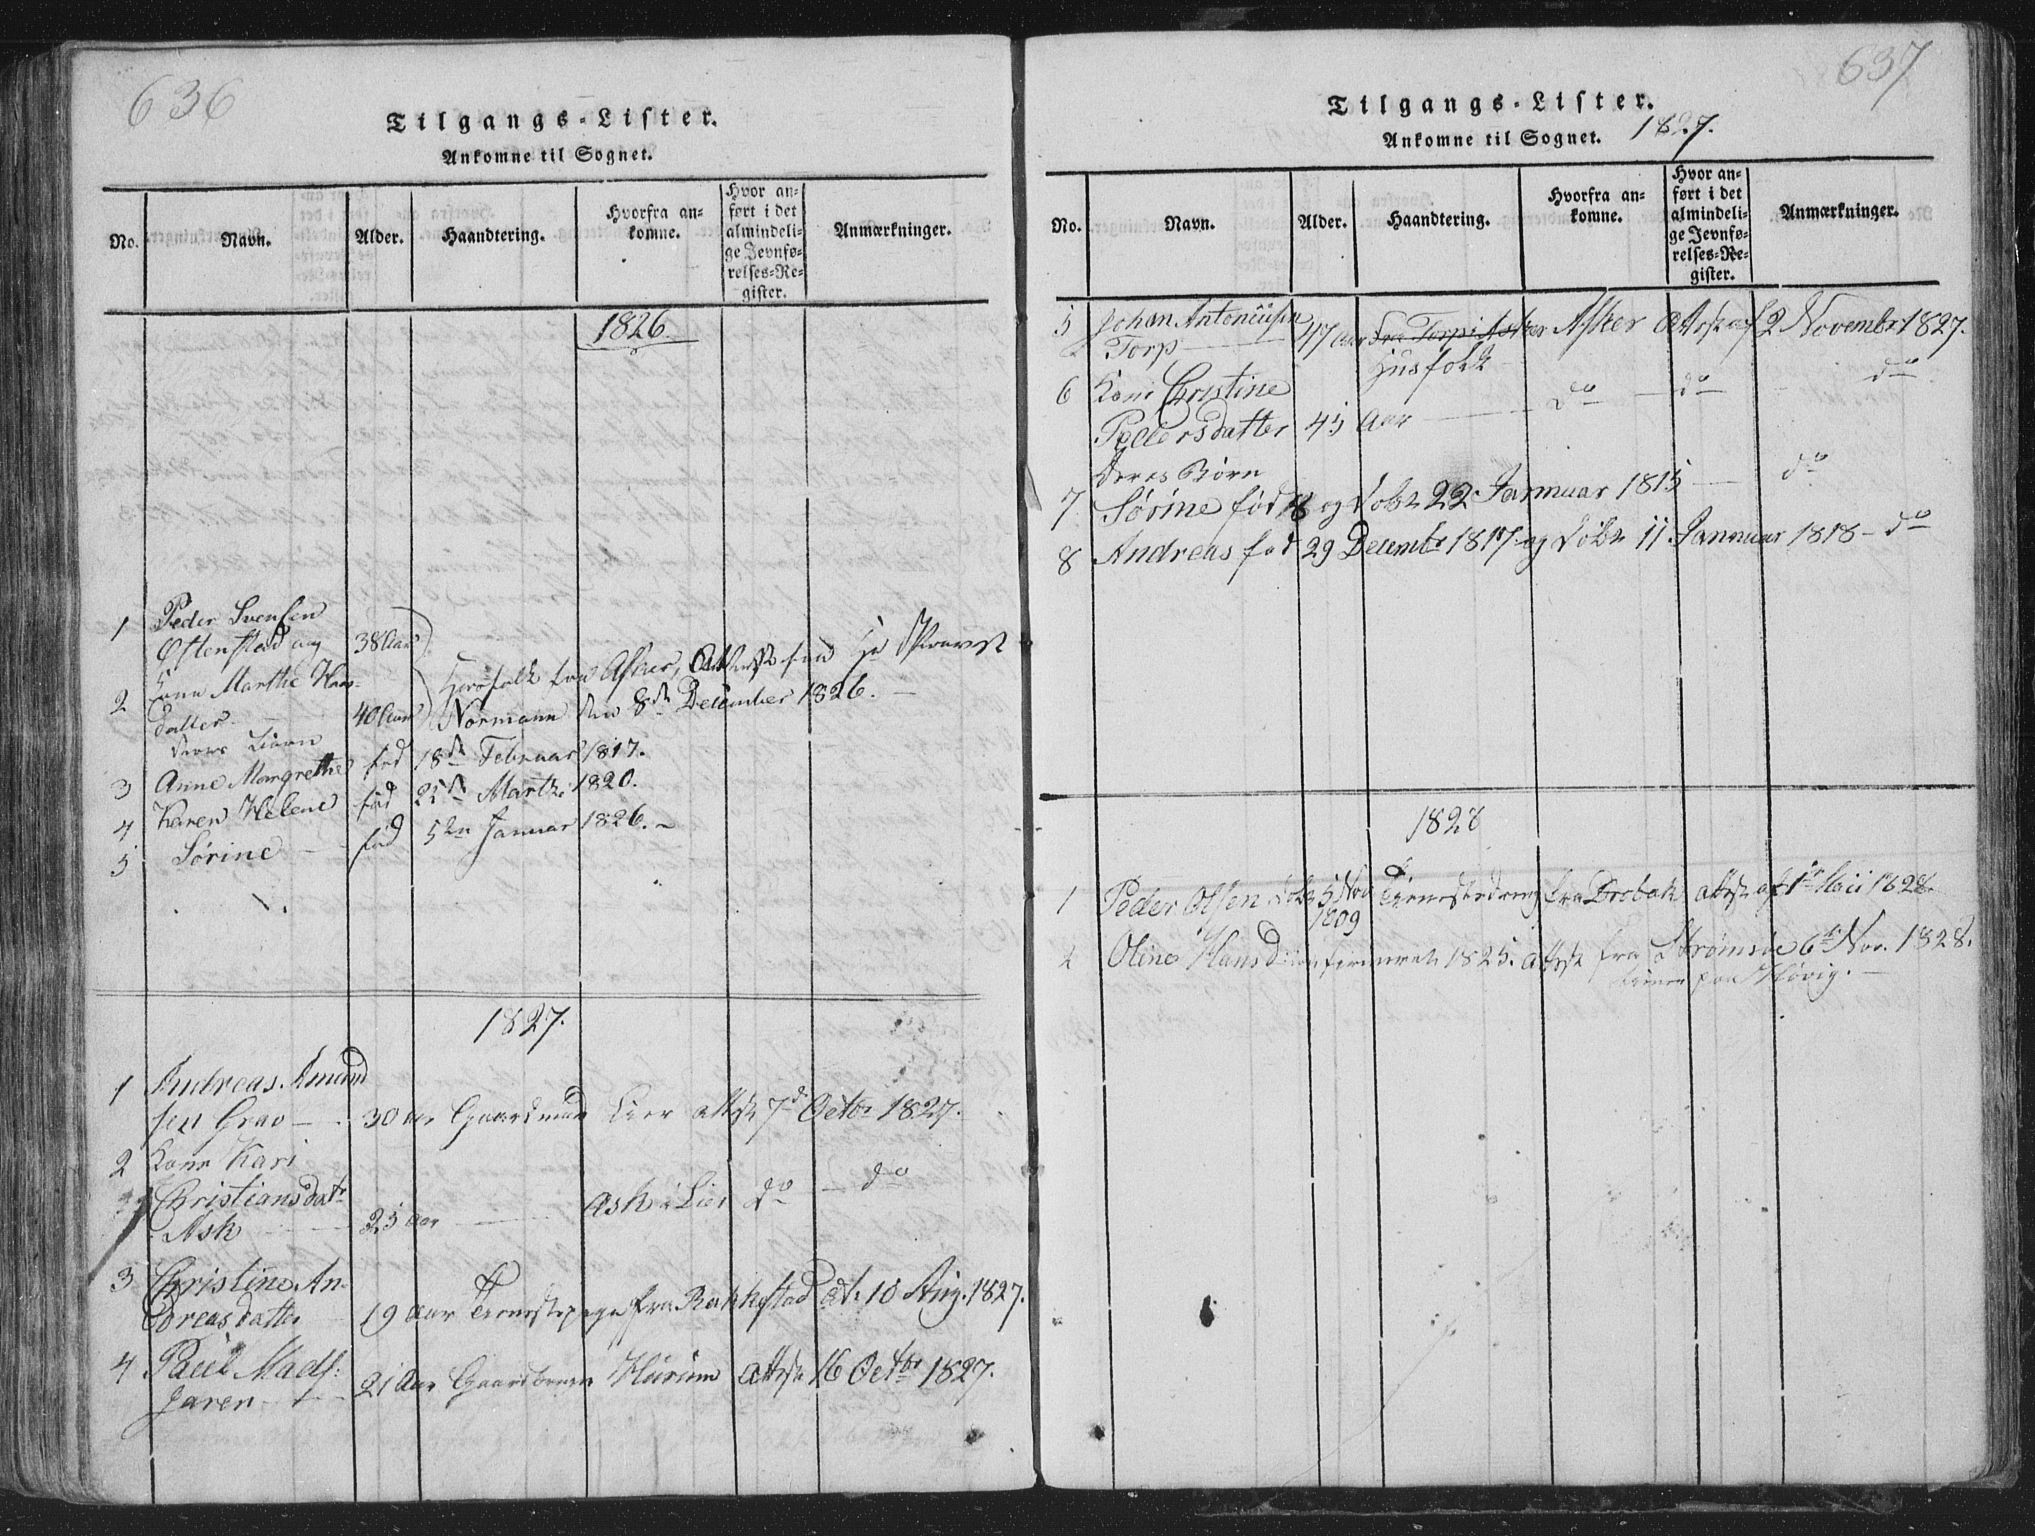 636
Tilgangs-Lister.
Ankomne til Sognet.
No.
Navn.
Alder.
Haandtering.
Hvorfra an-
komne.
Hvor an-
ført i det
almindeli-
ge Jevnfø-
relses-Re-
gister.
Anmærkninger.
1826.
1 Peder Svensen
Østenstad og 38 Aar
2 Kone Marthe Hans-
datter 40 Aar
Huusfolk fra Asker, Attest fra
Normann den 8de December 1826.
deres Børn
3 Anne Margrethe fød 18de Februar 1817.
4 Karen Helene fød 25de Marts 1820.
5 Sørine fød 5te Januar 1826.
1827.
1 Andreas Amund
sen Grav 30 Aar Gaardmand Lier attest 7de Octbr 1827.
2 Kone Kari
Christiansdatr
Ask 25 Aar Ask i Lier do do
3 Christine An-
dreasdatter 19 Aar Tienestepige fra Rakkestad at. 10 Aug. 1827.
4 Paul Mads:
Jaren 21 Aar Gaardbruger Hurum attest 16 Octbr 1827.
637
Tilgangs-Lister.
Ankomne til Sognet. 1827.
No.
Navn.
Alder.
Haandtering.
Hvorfra an-
komne.
Hvor an-
ført i det
almindeli-
ge Jevnfø-
relses-Re-
gister.
Anmærkninger.
5 Johan Antoniusen
Torp 47 Aar fra Torp i Asker Asker Attest af 2 Novembr 1827.
Husfolk
6 Kone Christine
Pedersdatter 45 Aar do do do
deres Børn
7 Sørine fød 18 og døbt 22 Januar 1815 do
8 Andreas fød 29 Decembr 1817 og døbt 11 Januar 1818 - do
1828
1 Peder Olsen døbt 5 Nov Tienestedreng fra Drobak attest af 1te Maii 1828.
1809
2 Oline Hansd: confirmeret 1825. attest fra Strømsøe 6te Nov. 1828.
tiener paa Høvig.